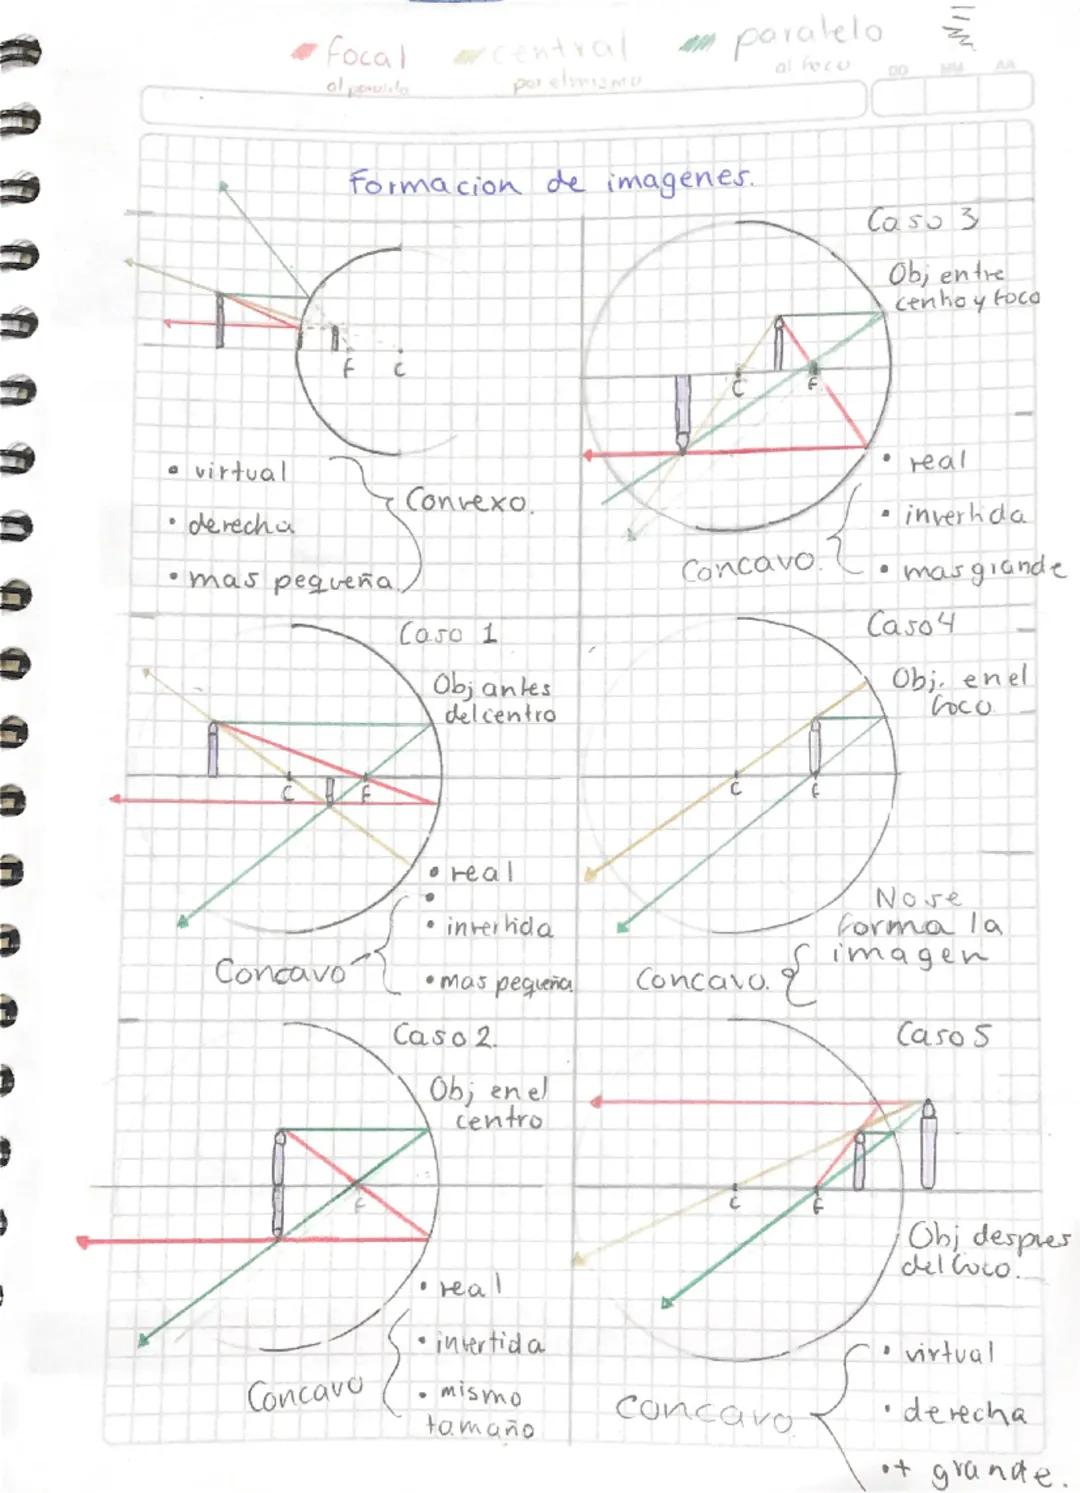 focal
al paralelo
central
por el mismo
paralelo
al foco
DD MM AA
Formacion de imagenes.
F C
• virtual
• derecha
• mas pequeña
Convexo.
Caso 3
Obj entre
centro y foco
C F
• real
• invertida
• mas grande
Concavo.
Caso 1
Obj antes
del centro
C F
• real
• invertida
• mas pequeña
Concavo
Caso 4
Obj. en el
foco
C F
No se
forma la
imagen
Concavo.
Caso 2.
Obj en el
centro
F
• real
• invertida
• mismo
tamaño
Concavo
Caso 5
C F
Obj despues
del foco.
• virtual
• derecha
• + grande.
Concavo